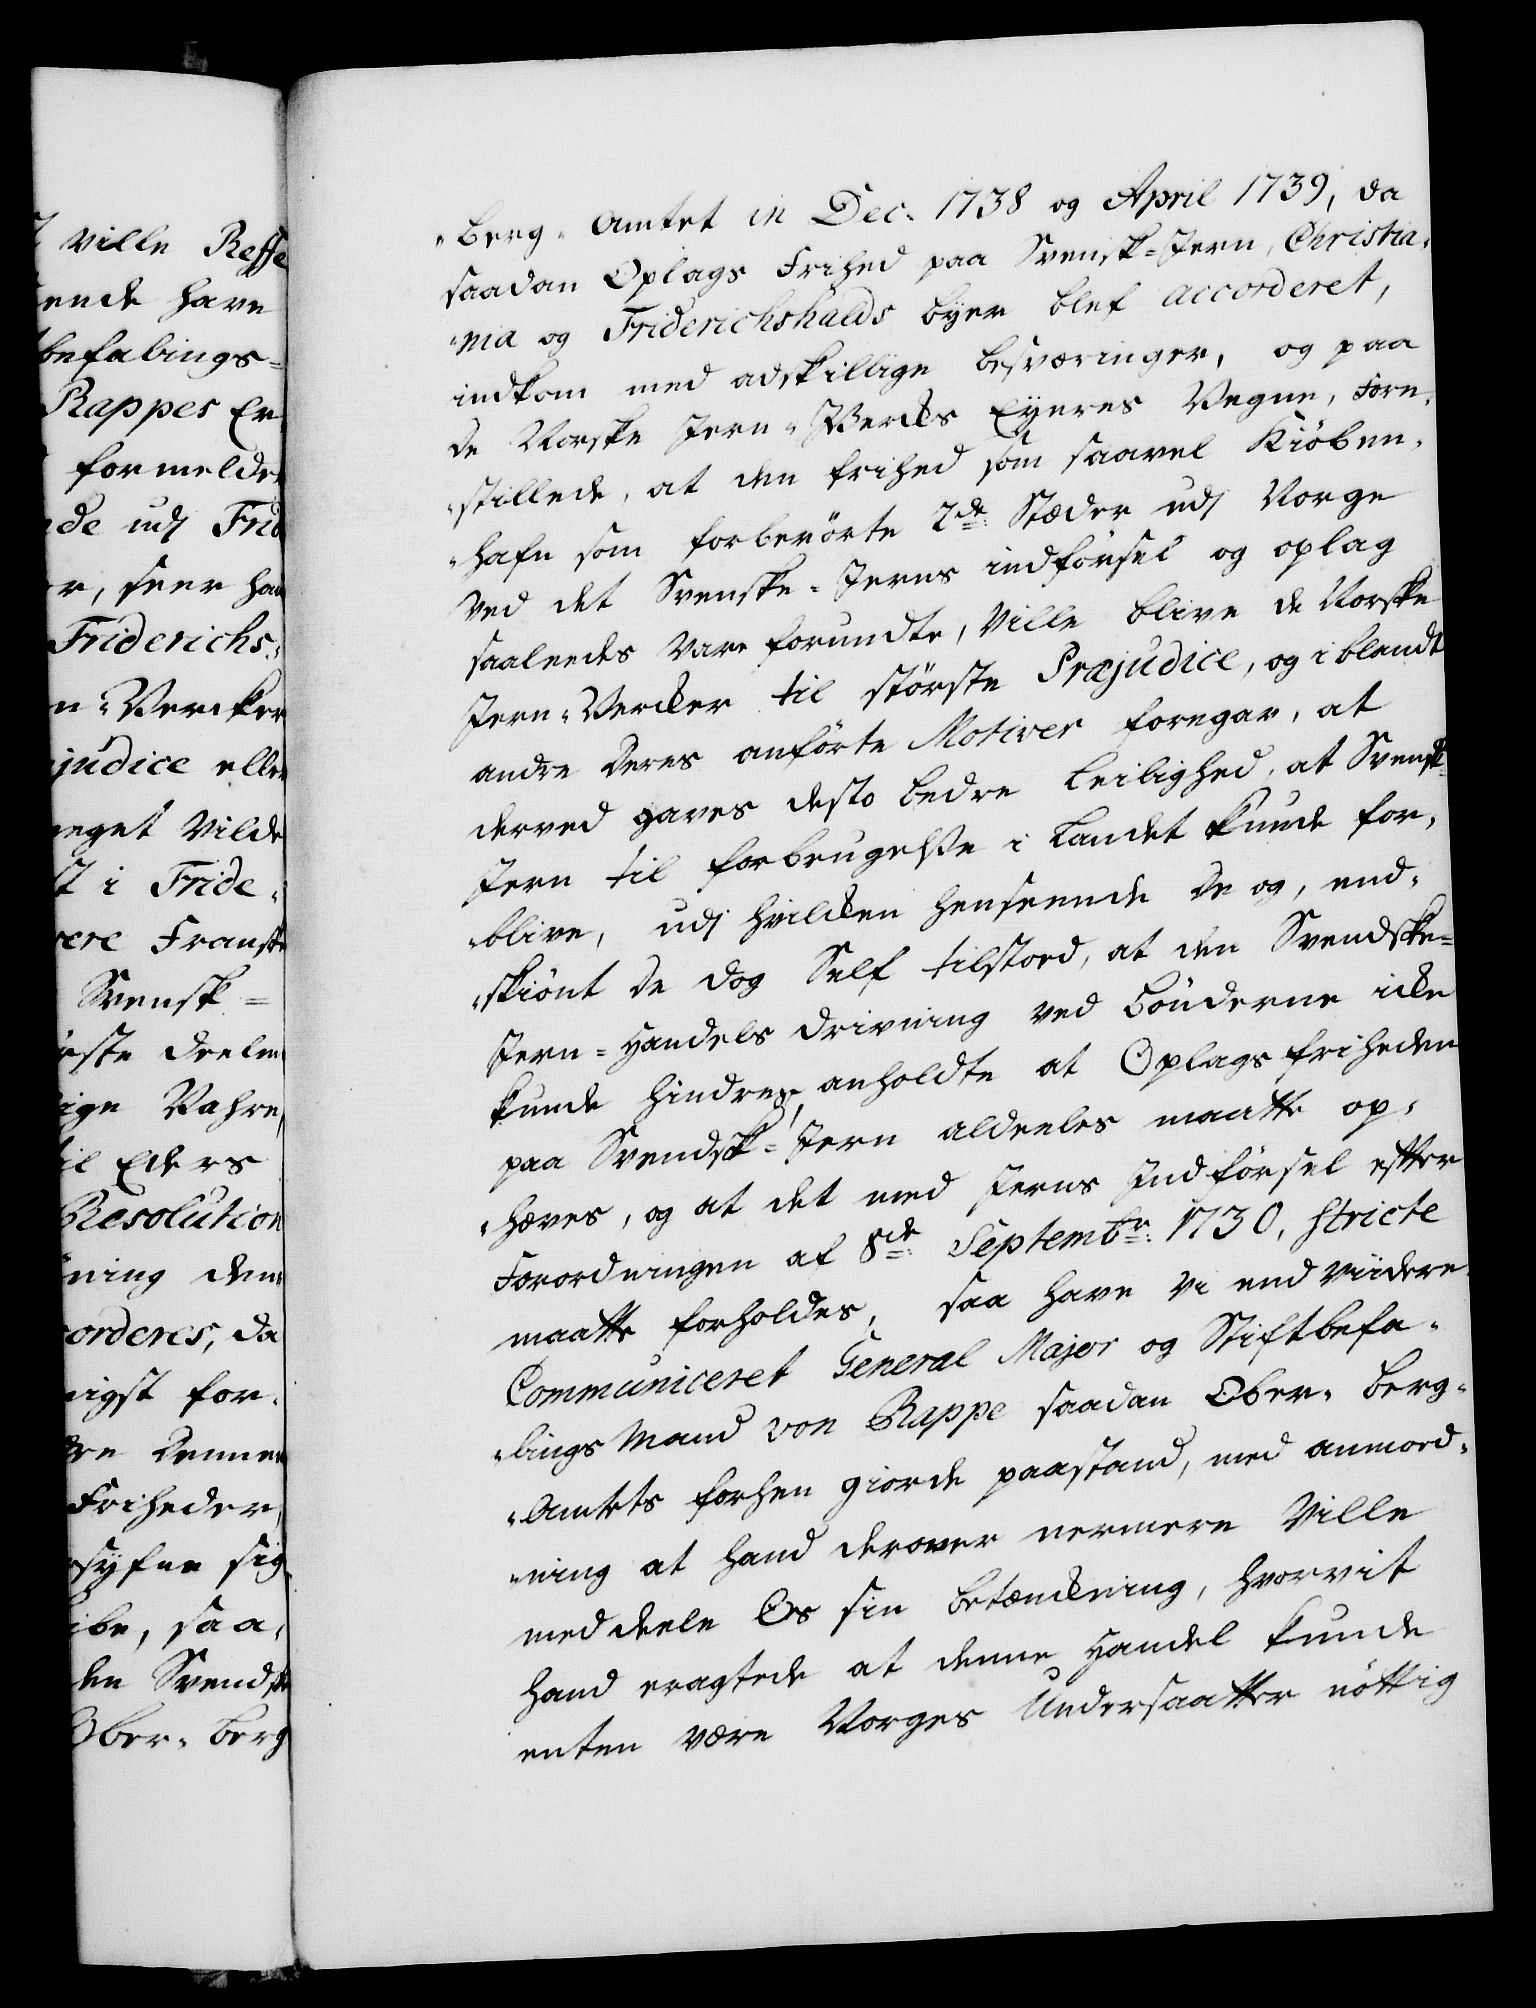 ville Reffe
ende have
befalings-
Rappes Er
formelde
de udj Frid
r, seer han
Friderichs-
n-Vercker
judice eller
eget vilde
t i Fride-
ere Fransk
Svensk-
ste deelen
ige Vahre,
il Eders
Resolution
ning den
orderes, da
igst for-
re denne
Friheder,
syfne sig
ibe, saa-
den Svendsk
Ober-Berg
-Berg-Amtet in Dec. 1738 og April 1739, da
saadan Oplags Frihed paa Svensk-Jern, Christia-
-nia og Friderichshalds byer blef accorderet,
indkom med adskillige besværinger, og paa
de Norske Jern-Wercks Eyeres Vegne, fore-
-stillede, at den frihed som saavel Kiöben-
-hafn som forberörte 2de Stæder udj Norge
ved det Svenske-Jerns indförsel og oplag
saaledes vare forundte, ville blive de Norske
Jern-Vercker til störste Præjudice, og iblandt
andre deres anförte Motiver foregav, at
derved gaves desto bedre Leilighed, at Svensk-
Jern til forbrugelse i Landet kunde for-
-blive, udj hvilcken henseende de og, end-
-skiönt de dog Self tilstoed, at den Svendske-
Jern-Handels drivning ved bönderne icke
kunde hindres, anholdte at Oplags friheden
paa Svendsk-Jern aldeeles maatte op-
-hæves, og at det med Jerns Indförsel efter
Forordningen af 8de Septembr: 1730. stricte
maatte forholdes, saa have vi end viidere
Communiceret General Major og Stiftbefa-
-lings Mand von Rappe saadan Ober-Berg-
-Amtets forhen giorde paastand, med anmod-
-ning at hand derover nermere ville
meddeele Os sin betænckning, hvorvit
hand eragtede at denne Handel kunde
enten være Norges Undersaatter nöttig